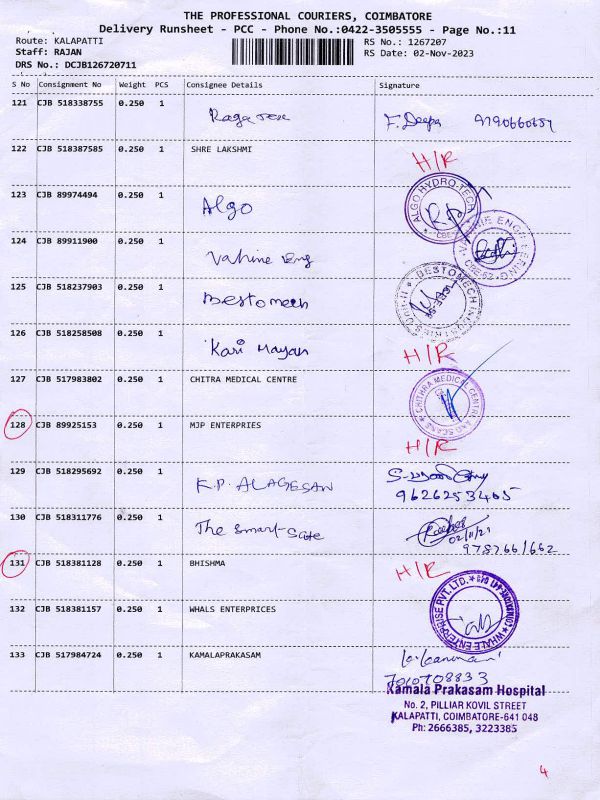 THE PROFESSIONAL COURIERS, COIMBATORE
Delivery Runsheet - PCC - Phone No.:0422-3505555 - Page No.:11
Route: KALAPATTI
RS No.: 1267207
Staff: RAJAN
RS Date: 02-Nov-2023
DRS No.: DCJB126720711
S No Consignment No Weight PCS Consignee Details Signature
121 CJB 518338755 0.250 1 F. Deepa
122 CJB 518387585 0.250 1 SHRE LAKSHMI H/R
123 CJB 89974494 0.250 1 Algo
ALGO HYDRO TECH
124 CJB 89911900 0.250 1 Vahine Eng
VAHINIE ENGINEERING CBE-62
125 CJB 518237903 0.250 1 Bestomech
BESTOMECH INDUSTRIES UNIT-II
126 CJB 518258508 0.250 1 Kari Mayan H/R
127 CJB 517983802 0.250 1 CHITRA MEDICAL CENTRE
CHITHRA MEDICAL CENTRE AND SCANS
128 CJB 89925153 0.250 1 MJP ENTERPRIES H/R
129 CJB 518295692 0.250 1 K.P. ALAGESAN
9626253405
130 CJB 518311776 0.250 1 The Smart
131 CJB 518381128 0.250 1 BHISHMA H/R
132 CJB 518381157 0.250 1 WHALS ENTERPRICES
WHALE ENTERPRISE PVT. LTD.
133 CJB 517984724 0.250 1 KAMALAPRAKASAM
7010708833
Kamala Prakasam Hospital
No. 2, PILLIAR KOVIL STREET
KALAPATTI, COIMBATORE-641 048
Ph: 2666385, 3223385
4